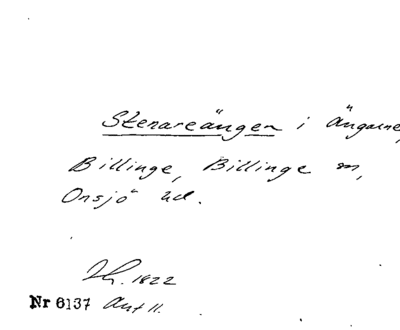 Stenareängen i Ängarne,
Billinge, Billinge sn,
Onsjö hd.
1822
Nr 6137 Akt 11.